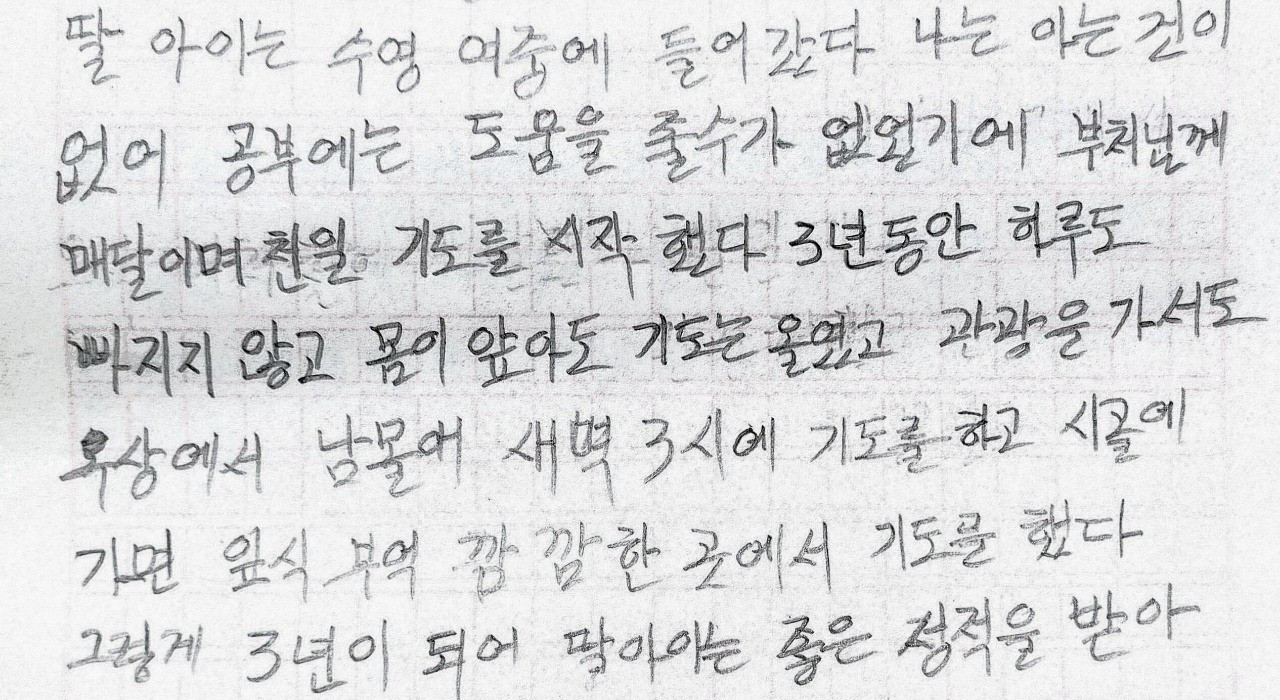 딸 아이는 수영 여중에 들어 갔다 나는 아는 건이
없어 공부에는 도움을 줄수가 없었기에 부처님께
매달이며 천일 기도를 시작 했다 3년동안 하루도
빠지지 않고 몸이 앞아도 기도는 올렸고 관광을 가서도
옥상에서 남몰에 새벽 3시에 기도를 하고 시골에
가면 옆식 부억 깜깜한 곳에서 기도를 했다
그렇게 3년이 되어 딸아이는 좋은 성적을 받아